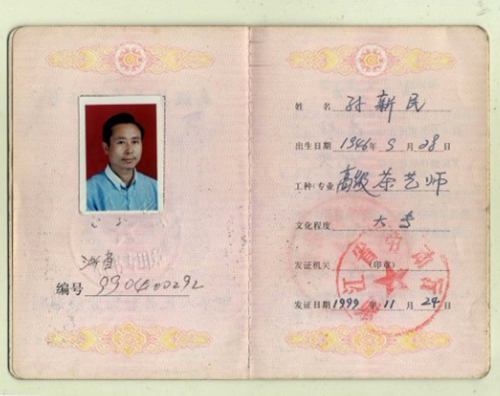 浙省
编号 9904000292
姓 名 孙新民
出生日期 1946 年 9 月 28 日
工种(专业) 高级茶艺师
文化程度 大专
发证机关 (印章)
浙江省劳动厅
发证日期 1999 年 11 月 24 日